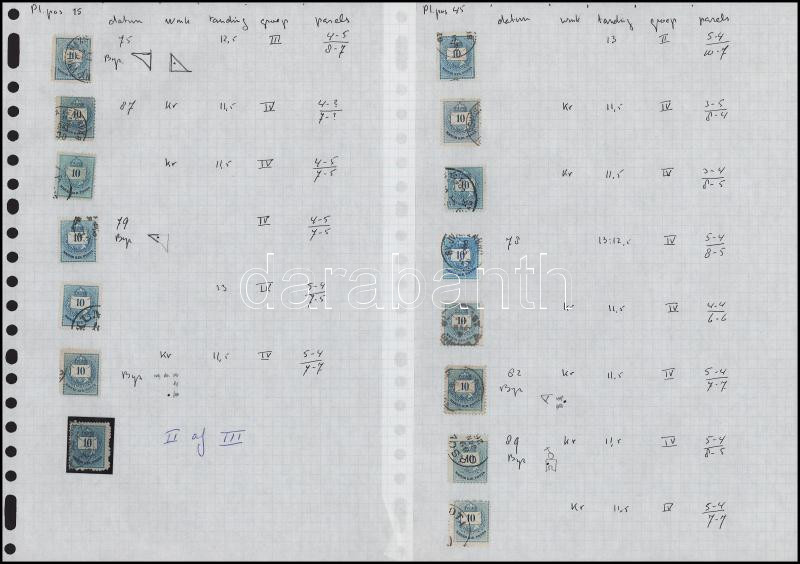 Pl. pos 35
datum wmk tanding groep parels
75 12,5 III 4-5 8-7
Byz
87 Kr 11,5 IV 4-? 7-?
Kr 11,5 IV 4-5 7-5
79 IV 4-5 7-5
Byz
13 III 5-4 7-5
Kr 11,5 IV 5-4 7-7
Byz
II of III
Pl. pos 45
datum wmk tanding groep parels
13 II 5-4 10-7
Kr 11,5 IV 3-5 8-4
Kr 11,5 IV 3-4 8-5
78 13:12,5 IV 5-4 8-5
Kr 11,5 IV 4-4 6-6
82 Kr 11,5 IV 5-4 7-7
Byz
89 Kr 11,5 IV 5-4 8-5
Byz
Kr 11,5 IV 5-4 7-7
darabanth